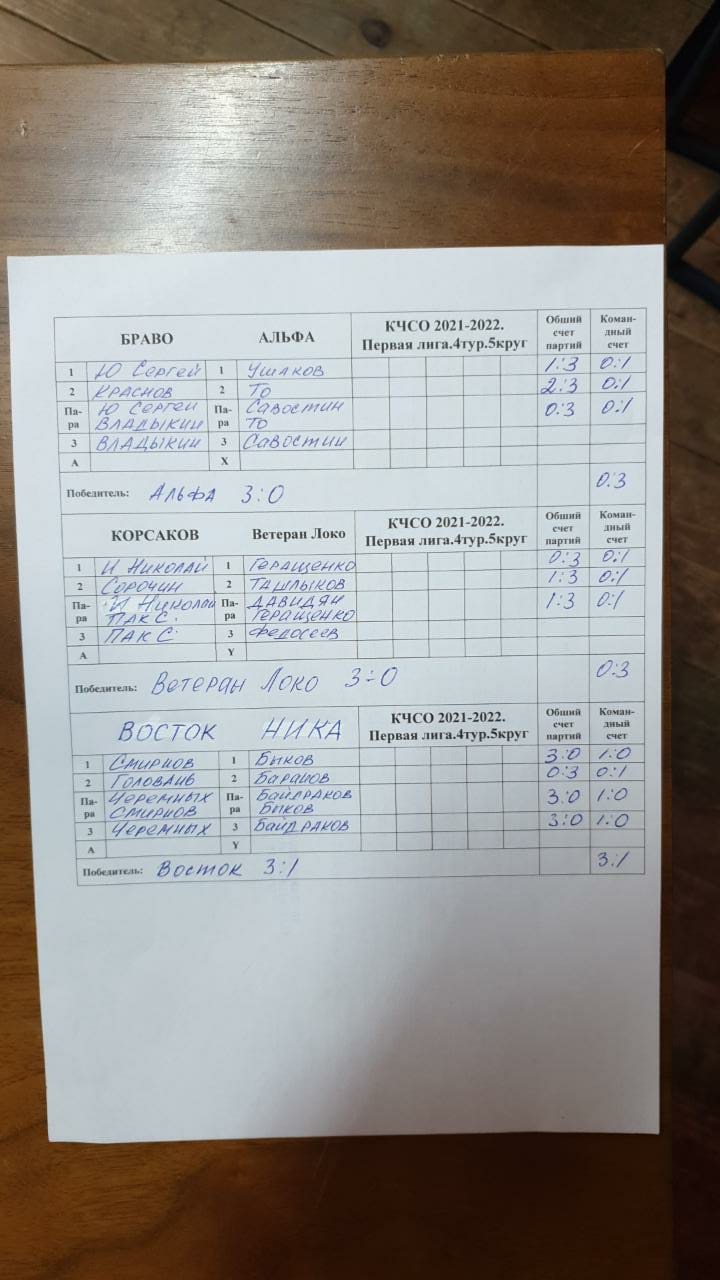 БРАВО АЛЬФА КЧСО 2021-2022. Первая лига.4тур.5круг Общий счет партий Коман-дный счет
1 Ю Сергей 1 Ушаков 1:3 0:1
2 Краснов 2 То 2:3 0:1
Па-ра Ю Сергей Владыкин Па-ра Савостин То 0:3 0:1
3 Владыкин 3 Савостин
А Х
Победитель: Альфа 3:0 0:3
КОРСАКОВ Ветеран Локо КЧСО 2021-2022. Первая лига.4тур.5круг Общий счет партий Коман-дный счет
1 И Николай 1 Геращенко 0:3 0:1
2 Сорочин 2 Ташлыков 1:3 0:1
Па-ра И Николай Пак С. Па-ра Давидян Геращенко 1:3 0:1
3 Пак С. 3 Федосеев
А Y
Победитель: Ветеран Локо 3:0 0:3
ВОСТОК НИКА КЧСО 2021-2022. Первая лига.4тур.5круг Общий счет партий Коман-дный счет
1 Смирнов 1 Быков 3:0 1:0
2 2 Баранов 0:3 0:1
Па-ра Черемных Смирнов Па-ра Байдраков Быков 3:0 1:0
3 Черемных 3 Байдраков 3:0 1:0
А Y
Победитель: Восток 3:1 3:1